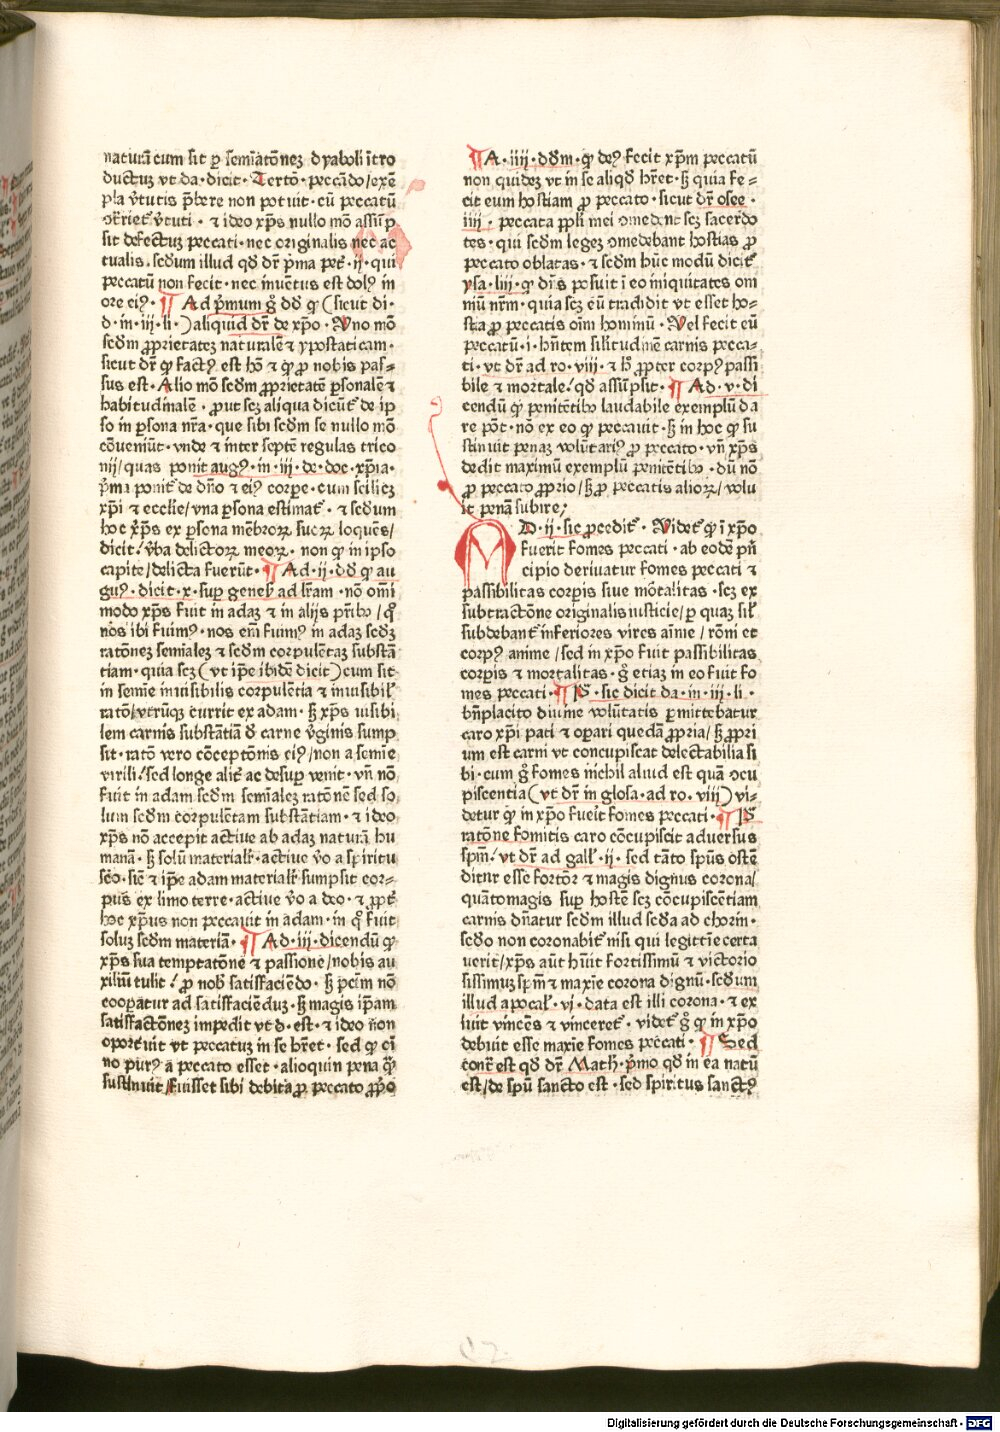 naturā cum sit ꝑ semīatōnez dyaboli ītro
ductuz vt da · dicit · Tertō · peccādo / exē
pla v̄tutis p̄bere non potuit · cū peccatū
ꝯtrariet᷑ v̄tuti · ⁊ ideo xp̄s nullo mō assūp
sit defectuz peccati · nec originalis nec ac
tualis · sedum illud qd̄ dr̄ p̄ma pet᷑ · ij · qui
peccatū non fecit · nec īuētus est dolꝰ in
ore eiꝰ · ¶ Ad p̄mum ḡ dd̄ ꝙ ( sicut di-
d · in · iij · li · ) aliquid dr̄ de xp̄o · Vno mō
sedm ꝓprietatez naturalē ⁊ ypostaticam ·
sicut dr̄ ꝙ factꝰ est hō ⁊ ꝙ ꝓ nobis pas-
sus est · Alio mō sedm ꝓprietatē ꝑsonalē ⁊
habitudinalē · ꝓut scz aliqua dicūt᷑ de ip
so in ꝑsona nr̄a · que sibi sedm se nullo mō
cōveniūt · vnde ⁊ inter septē regulas trico
nij / quas ponit augꝰ · in · iij · de · doc · xp̄ia ·
p̄ma ponit᷑ de dn̄o ⁊ eiꝰ corpe · cum scilicz
xp̄i ⁊ ecclie / vna ꝑsona estimat᷑ · ⁊ sedum
hoc xp̄s ex ꝑsona mēbroꝝ suoꝝ loquēs /
dicit · v̄ba delictoꝝ meoꝝ · non ꝙ in ipso
capite / delicta fuerūt · ¶ Ad · ij · dd̄ ꝙ au
guꝰ · dicit · x · suꝑ genes᷑ ad lr̄am · nō om̄i
modo xp̄s fuit in adaz ⁊ in alijs pr̄ibꝰ / qͦ
nos ibi fuimꝰ · nos em̄ fuimꝰ in adaz sedz
ratōnez semīalez ⁊ sedm corpulētaz substā
tiam · quia scz ( vt ip̄e ibidē dicit ) cum sit
in semīe inuisibilis corpulētia ⁊ inuisibil᷑
ratō / vtrūqꝫ currit ex adam · sꝫ xp̄s uisibi
lem carnis substātiā ð carne v̄ginis sump
sit · ratō vero cōceptōnis eiꝰ / non a semīe
virili / sed longe alit᷑ ac desuꝑ venit · vn̄ nō
fuit in adam sedm semīalez ratōnē sed so
lum sedm corpulētam substātiam · ⁊ ideo
xp̄s nō accepit actiue ab adaz naturā hu
manā · sꝫ solū materialr̄ · actiue v̄o a spiritu
sc̄o · sic̄ ⁊ ip̄e adam materialr̄ sumpsit cor-
pus ex limo terre · actiue v̄o a deo · ⁊ ꝓpt᷑
hoc xp̄us non peccauit in adam · in qͦ fuit
soluz sedm materiā · ¶ Ad · iij · dicendū ꝙ
xp̄s sua temptatōne ⁊ passione / nobis au
xiliū tulit / ꝓ nob᷑ satisfaciēdo · sꝫ pctm̄ nō
cooꝑatur ad satisfaciēduz · sꝫ magis ip̄am
satisfactōnez impedit vt d · est · ⁊ ideo non
oportuit vt peccatuz in se hr̄et · sed ꝙ oī
no purꝰ a peccato esset · alioquin pena q̄
sustinuit / fuisset sibi debita ꝓ peccato ꝓp̄o
¶ A · iiij · dd̄m · ꝙ deꝰ fecit xp̄m peccatū
non quidez vt in se aliqd̄ hr̄et · sꝫ quia fe-
cit eum hostiam ꝓ peccato · sicut dr̄ osee ·
iiij · peccata ppl̄i mei ꝯmedent scz sacerdo
tes · qui sedm legez ꝯmedebant hostias ꝓ
peccato oblatas · ⁊ sedm hūc modū dicit᷑
ysa · liij · ꝙ dn̄s posuit ī eo iniquitates om
niū nr̄m · quia scz eū tradidit vt esset ho-
stia ꝓ peccatis oīm hominū · Vel fecit eū
peccatū · i · hn̄tem similitudinē carnis pecca-
ti · vt dr̄ ad ro · viij · ⁊ hͦ ꝓpter corpꝰ passi
bile ⁊ mortale / qd̄ assūpsit · ¶ Ad · v · di
cendū ꝙ penitētibꝰ laudabile exemplū da
re pōt · nō ex eo ꝙ peccauit · sꝫ in hoc ꝙ su
stinuit penaz volūtariꝰ ꝓ peccato · vn̄ xp̄s
dedit maximū exemplū penitētibꝰ · dū nō
ꝓ peccato ꝓprio / sꝫ ꝓ peccatis alioꝝ / volu
it penā subire ;
AD · ij · sic ꝓcedit᷑ · Videt᷑ ꝙ ī xp̄o
fuerit fomes peccati · ab eodē pn̄
cipio deriuatur fomes peccati ⁊
passibilitas corꝑis siue mortalitas · scz ex
subtractōne originalis iusticie / ꝑ quaz sil᷑
subdebant᷑ inferiores vires aīmie / rōni et
corpꝰ anime / sed in xp̄o fuit passibilitas
corꝑis ⁊ mortalitas · ḡ etiaz in eo fuit fo
mes peccati · ¶ P᷒ · sic dicit da · in · iij · li ·
bn̄placito diuine volūtatis ꝑmittebatur
caro xp̄i pati ⁊ oꝑari quedā ꝓpria / sꝫ ꝓpri
um est carni vt concupiscat delectabilia si
bi · cum ḡ fomes nichil aliud est quā ꝯcu
piscentia ( vt dr̄ in glosa · ad ro · viij ) vi-
detur ꝙ in xp̄o fuerit fomes peccati · ¶ P᷒
ratōne fomitis caro cōcupiscit aduersus
spm̄ / vt dr̄ ad gall᷑ · ij · sed tāto spūs ostē
ditur esse fortior ⁊ magis dignus corona /
quāto magis suꝑ hostē scz cōcupiscētiam
carnis dn̄atur sedm illud scd̄a ad chorin ·
scd̄o non coronabit᷑ nisi qui legittīe certa
uerit / xp̄s aūt hūit fortissimū ⁊ victorio
sissimuz spm̄ ⁊ maxīe corona dignū · sedum
illud apocal᷑ · vi · data est illi corona · ⁊ ex
iuit vincēs ⁊ vinceret · videt᷑ ḡ ꝙ in xp̄o
debuit esse maxīe fomes peccati · ¶ Sed
contr̄ est qd̄ dr̄ Math · p̄mo qd̄ in ea natū
est / de spū sancto est · sed spiritus sanctꝰ
Digitalisierung gefördert durch die Deutsche Forschungsgemeinschaft · DFG